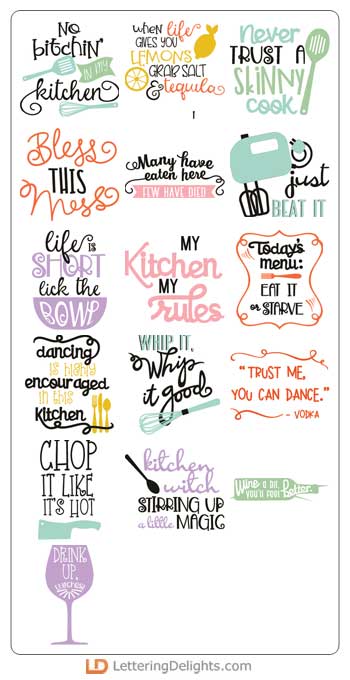 NO
bitchin'
IN MY
kitchen
when life
GIVES YOU
LEMONS
GRAB SALT
& tequila
Never
TRUST A
SKINNY
cook
Bless
THIS
Mess
Many have
eaten here
FEW HAVE DIED
just
BEAT IT
life IS
SHORT
lick the
BOWL
MY
Kitchen
MY
rules
Today's
menu:
EAT IT
or STARVE
dancing
is highly
encouraged
in this
Kitchen
WHIP IT,
Whip
it good
"TRUST ME,
YOU CAN DANCE."
- VODKA
CHOP
IT LIKE
IT'S HOT
kitchen
witch
STIRRING UP
a little MAGIC
Wine a bit,
you'll feel better.
DRINK
UP,
witches!
LD LetteringDelights.com